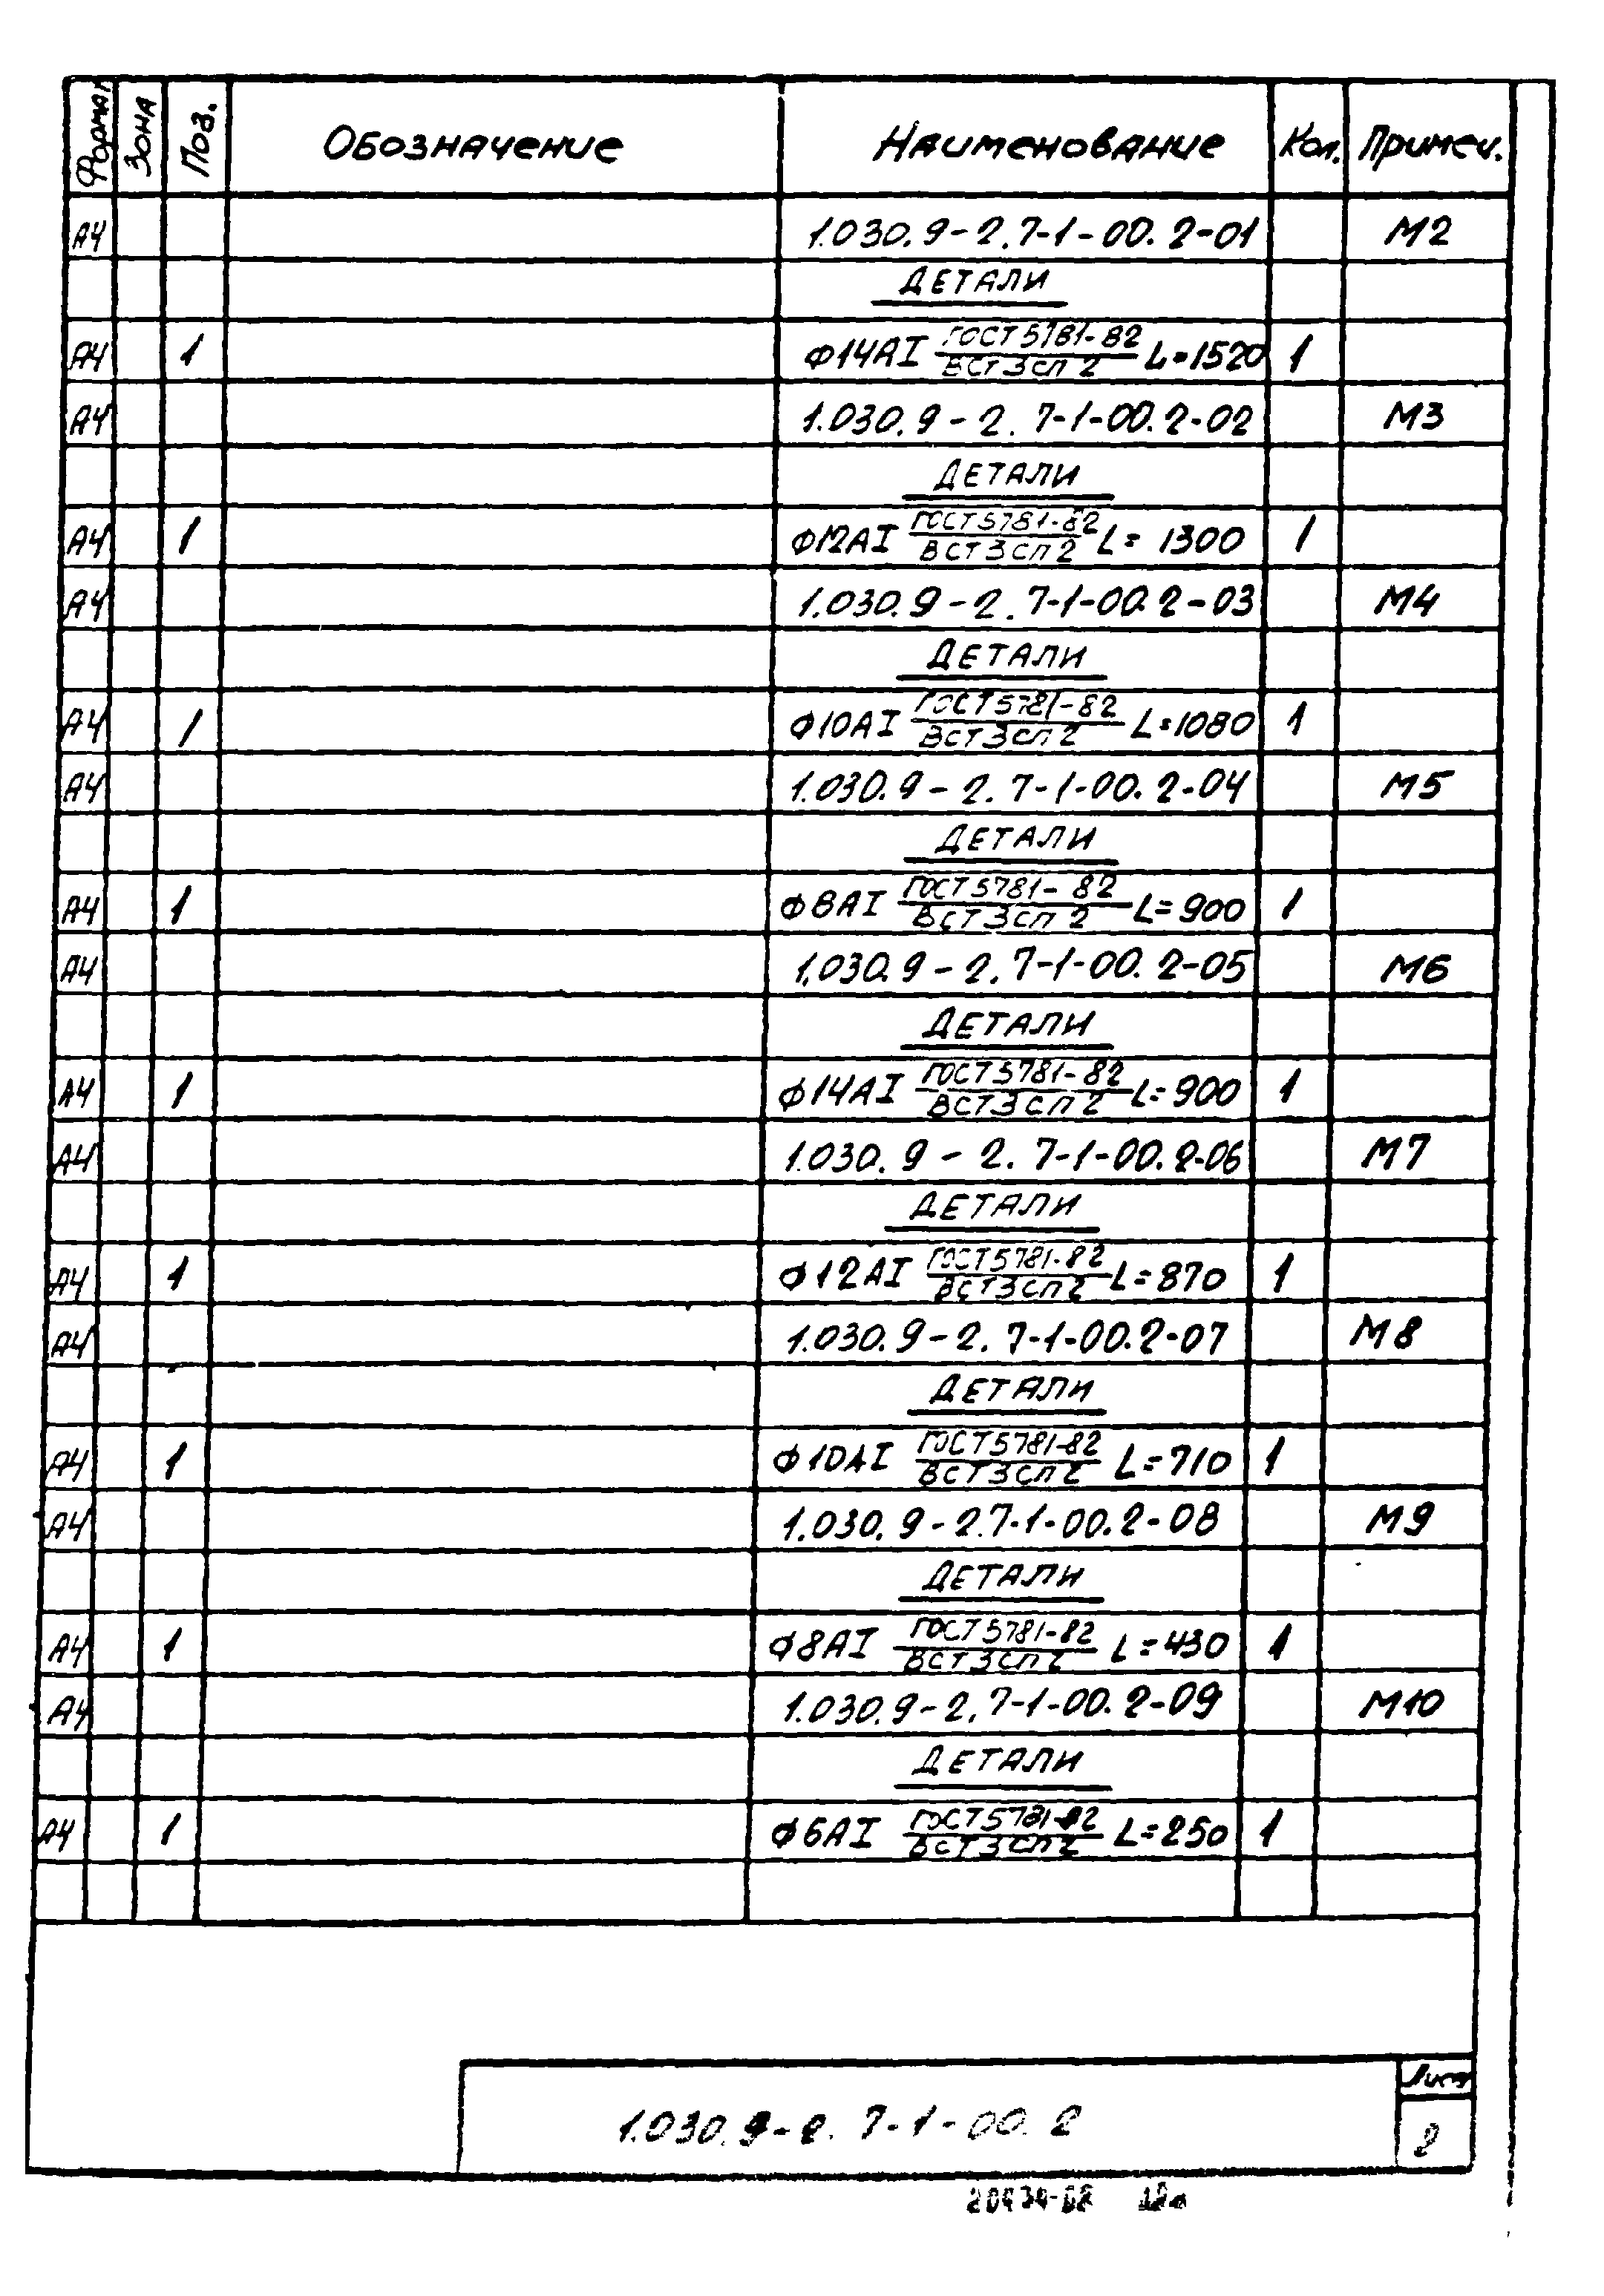 Формат Зона Поз. Обозначение Наименование Кол. Примеч.
А4 1.030.9-2.7-1-00.2-01 М2
ДЕТАЛИ
А4 1 Ф14АI ГОСТ 5781-82 / ВСт3сп2 L=1520 1
А4 1.030.9-2.7-1-00.2-02 М3
ДЕТАЛИ
А4 1 Ф12АI ГОСТ 5781-82 / ВСт3сп2 L=1300 1
А4 1.030.9-2.7-1-00.2-03 М4
ДЕТАЛИ
А4 1 Ф10АI ГОСТ 5781-82 / ВСт3сп2 L=1080 1
А4 1.030.9-2.7-1-00.2-04 М5
ДЕТАЛИ
А4 1 Ф8АI ГОСТ 5781-82 / ВСт3сп2 L=900 1
А4 1.030.9-2.7-1-00.2-05 М6
ДЕТАЛИ
А4 1 Ф14АI ГОСТ 5781-82 / ВСт3сп2 L=900 1
А4 1.030.9-2.7-1-00.2-06 М7
ДЕТАЛИ
А4 1 Ф12АI ГОСТ 5781-82 / ВСт3сп2 L=870 1
А4 1.030.9-2.7-1-00.2-07 М8
ДЕТАЛИ
А4 1 Ф10АI ГОСТ 5781-82 / ВСт3сп2 L=710 1
А4 1.030.9-2.7-1-00.2-08 М9
ДЕТАЛИ
А4 1 Ф8АI ГОСТ 5781-82 / ВСт3сп2 L=430 1
А4 1.030.9-2.7-1-00.2-09 М10
ДЕТАЛИ
А4 1 Ф6АI ГОСТ 5781-82 / ВСт3сп2 L=250 1
Лист
1.030.9-2.7-1-00.2 2